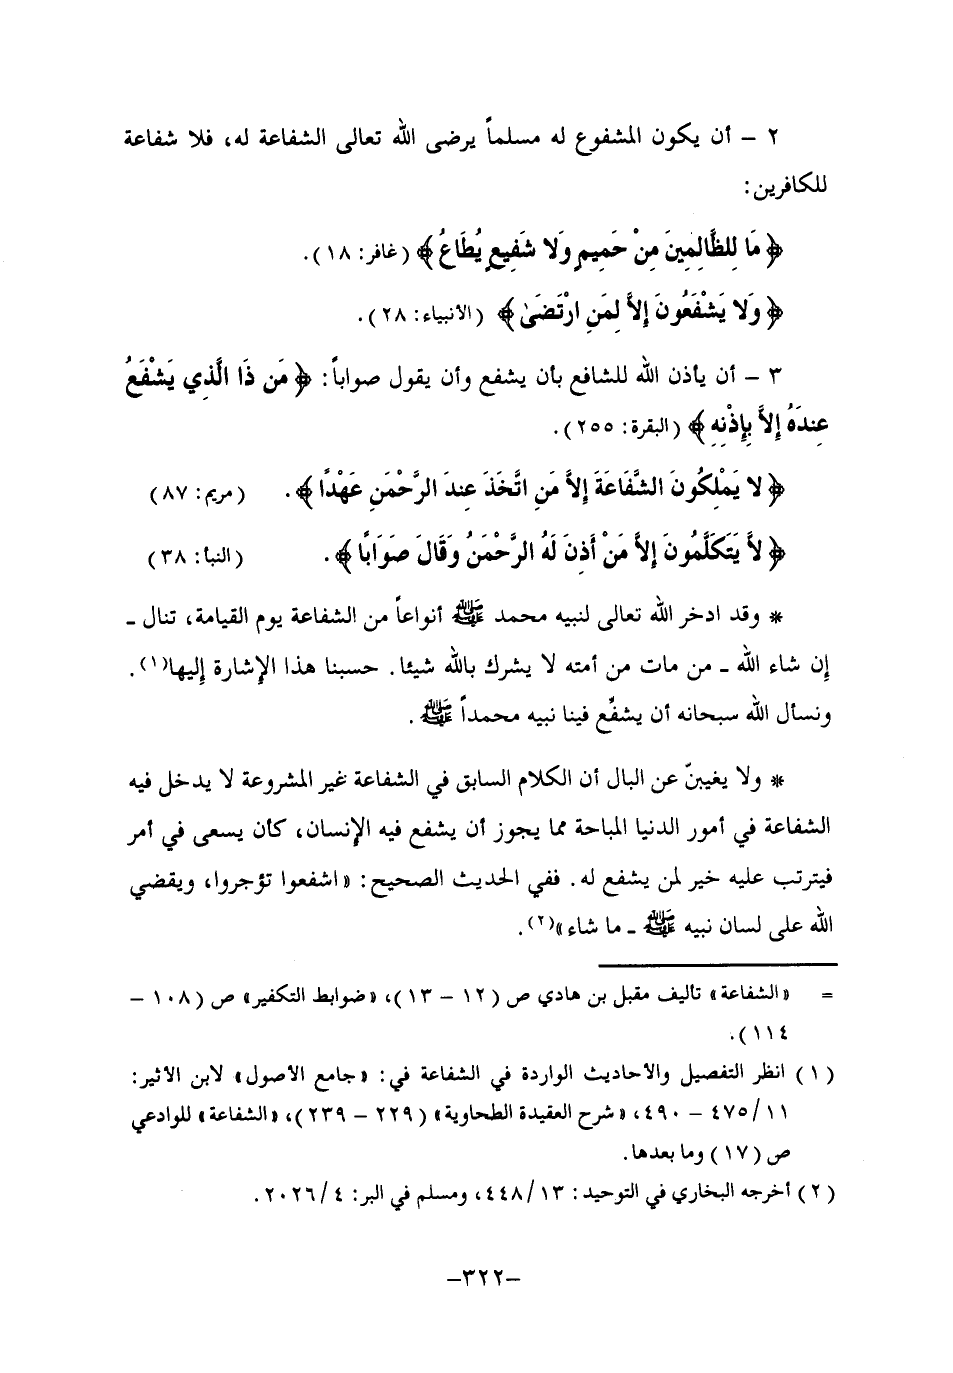 ٢ – أن يكون المشفوع له مسلماً يرضى الله تعالى الشفاعة له، فلا شفاعة
للكافرين:
﴿ مَا لِلظَّالِمِينَ مِنْ حَمِيمٍ وَلا شَفِيعٍ يُطَاعُ ﴾ (غافر: ١٨).
﴿ وَلا يَشْفَعُونَ إِلاَّ لِمَنِ ارْتَضَىٰ ﴾ (الأنبياء: ٢٨).
٣ – أن يأذن الله للشافع بأن يشفع وأن يقول صواباً: ﴿ مَن ذَا الَّذِي يَشْفَعُ
عِندَهُ إِلاَّ بِإِذْنِهِ ﴾ (البقرة: ٢٥٥).
﴿ لا يَمْلِكُونَ الشَّفَاعَةَ إِلاَّ مَنِ اتَّخَذَ عِندَ الرَّحْمَنِ عَهْدًا ﴾. (مريم: ٨٧)
﴿ لاَّ يَتَكَلَّمُونَ إِلاَّ مَنْ أَذِنَ لَهُ الرَّحْمَنُ وَقَالَ صَوَابًا ﴾. (النبأ: ٣٨)
* وقد ادخر الله تعالى لنبيه محمد ﷺ أنواعاً من الشفاعة يوم القيامة، تنال ـ
إن شاء الله ـ من مات من أمته لا يشرك بالله شيئا. حسبنا هذا الإشارة إليها(١).
ونسأل الله سبحانه أن يشفِّع فينا نبيه محمداً ﷺ.
* ولا يغيبنّ عن البال أن الكلام السابق في الشفاعة غير المشروعة لا يدخل فيه
الشفاعة في أمور الدنيا المباحة مما يجوز أن يشفع فيه الإنسان، كأن يسعى في أمر
فيترتب عليه خير لمن يشفع له. ففي الحديث الصحيح: «اشفعوا تؤجروا، ويقضي
الله على لسان نبيه ﷺ ـ ما شاء»(٢).
= «الشفاعة» تأليف مقبل بن هادي ص (١٢ – ١٣)، «ضوابط التكفير» ص (١٠٨ –
١١٤).
(١) انظر التفصيل والأحاديث الواردة في الشفاعة في: «جامع الأصول» لابن الأثير:
١١/ ٤٧٥ – ٤٩٠، «شرح العقيدة الطحاوية» (٢٢٩ – ٢٣٩)، «الشفاعة» للوادعي
ص (١٧) وما بعدها.
(٢) أخرجه البخاري في التوحيد: ١٣/ ٤٤٨، ومسلم في البر: ٤/ ٢٠٢٦.
–٣٢٢–